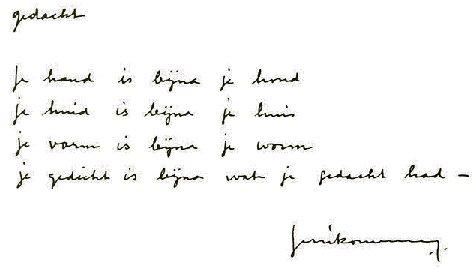 gedacht
je hand is bijna je hond
je huid is bijna je huis
je vorm is bijna je worm
je gedicht is bijna wat je gedacht had –